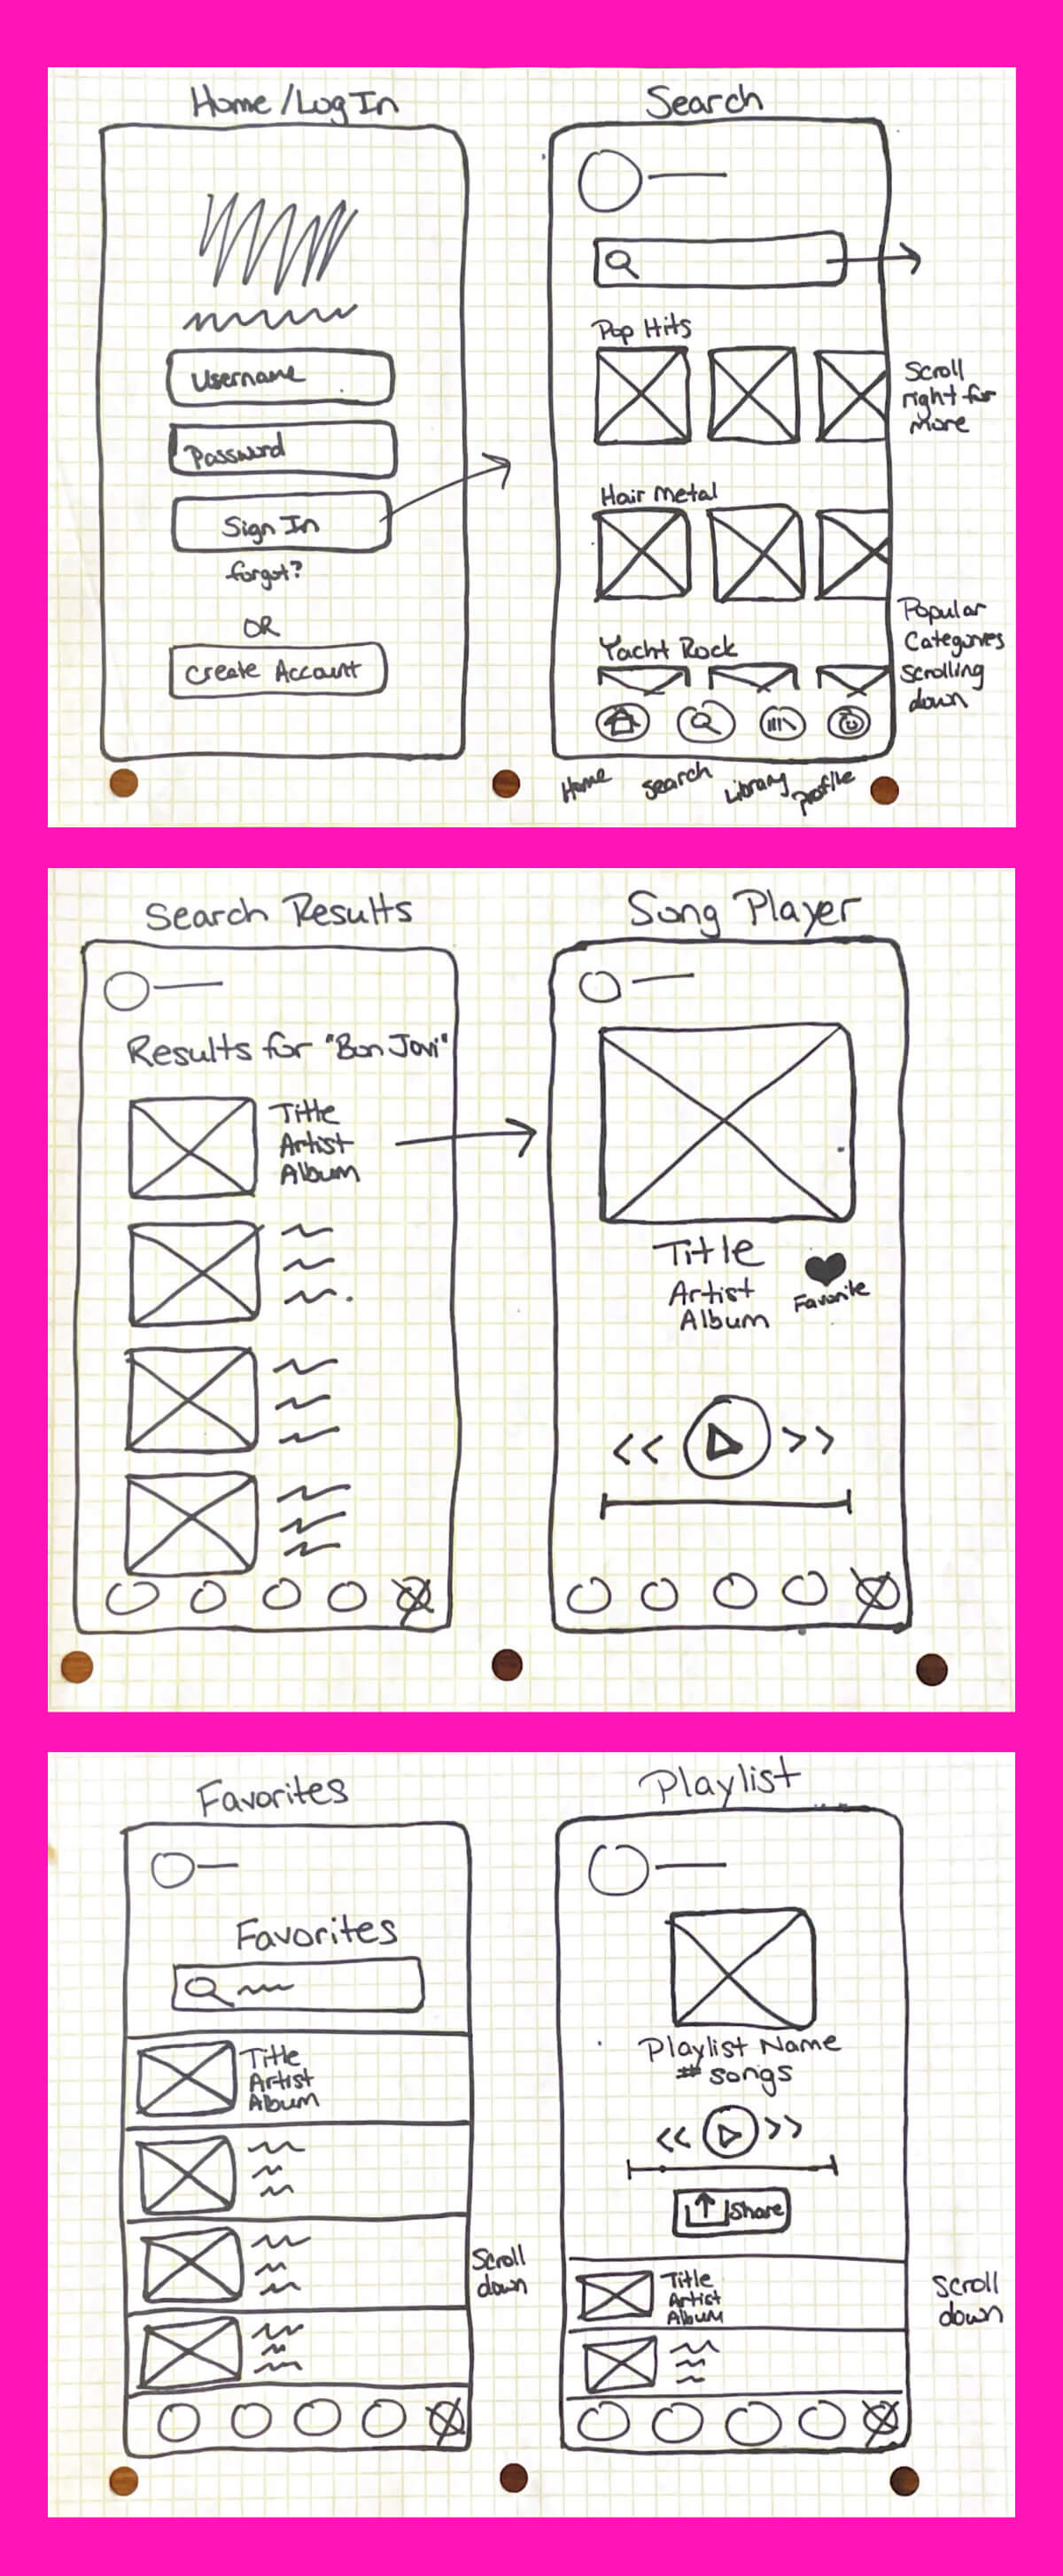 Home/Log In
Username
Password
Sign In
forgot?
OR
Create Account
Search
Pop Hits
Scroll
right for
more
Hair Metal
Popular
Categories
Scrolling
down
Yacht Rock
Home
search
Library
profile
Search Results
Results for "Bon Jovi"
Title
Artist
Album
Song Player
Title
Artist
Album
Favorite
<<
>>
Favorites
Favorites
Title
Artist
Album
Scroll
down
Playlist
Playlist Name
# songs
<<
>>
Share
Title
Artist
Album
Scroll
down